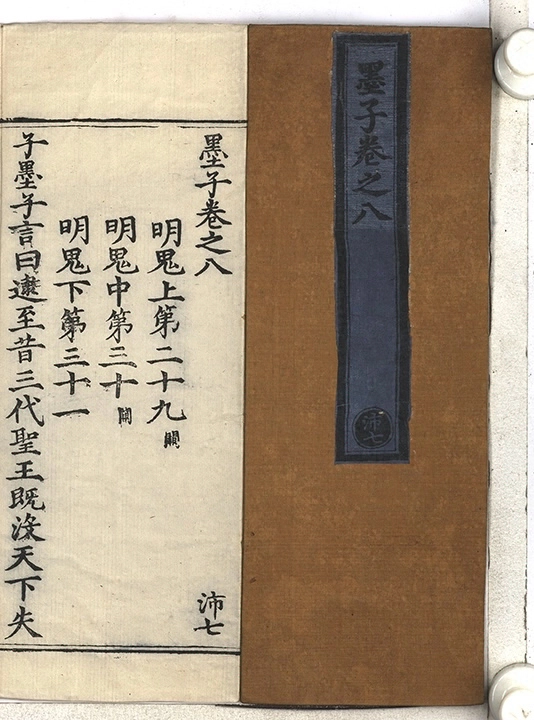 墨子卷之八
沛七
墨子卷之八 沛七
明鬼上第二十九 闕
明鬼中第三十 闕
明鬼下第三十一
子墨子言曰逮至昔三代聖王既沒天下失